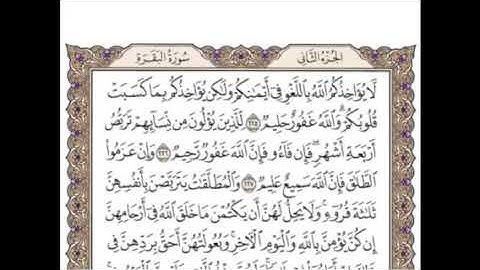 سُورَةُ البَقَرَةِ الجُزْءُ الثَّانِي
لَّا يُؤَاخِذُكُمُ ٱللَّهُ بِٱللَّغْوِ فِىٓ أَيْمَٰنِكُمْ وَلَٰكِن يُؤَاخِذُكُم بِمَا كَسَبَتْ
قُلُوبُكُمْ ۗ وَٱللَّهُ غَفُورٌ حَلِيمٌ ٢٢٥ لِّلَّذِينَ يُؤْلُونَ مِن نِّسَآئِهِمْ تَرَبُّصُ
أَرْبَعَةِ أَشْهُرٍ ۖ فَإِن فَآءُو فَإِنَّ ٱللَّهَ غَفُورٌ رَّحِيمٌ ٢٢٦ وَإِنْ عَزَمُوا۟
ٱلطَّلَٰقَ فَإِنَّ ٱللَّهَ سَمِيعٌ عَلِيمٌ ٢٢٧ وَٱلْمُطَلَّقَٰتُ يَتَرَبَّصْنَ بِأَنفُسِهِنَّ
ثَلَٰثَةَ قُرُوٓءٍ ۚ وَلَا يَحِلُّ لَهُنَّ أَن يَكْتُمْنَ مَا خَلَقَ ٱللَّهُ فِىٓ أَرْحَامِهِنَّ
إِن كُنَّ يُؤْمِنَّ بِٱللَّهِ وَٱلْيَوْمِ ٱلْءَاخِرِ ۚ وَبُعُولَتُهُنَّ أَحَقُّ بِرَدِّهِنَّ فِى